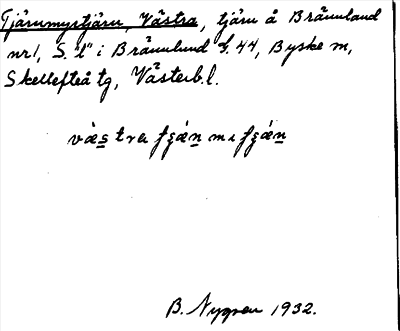 Tjärnmyrtjärn, Västra, tjärn å Brännland
nr 1, S. "l" i Brännlund f. 44, Byske sn,
Skellefteå tg, Västerb. l.
B. Nygren 1932.